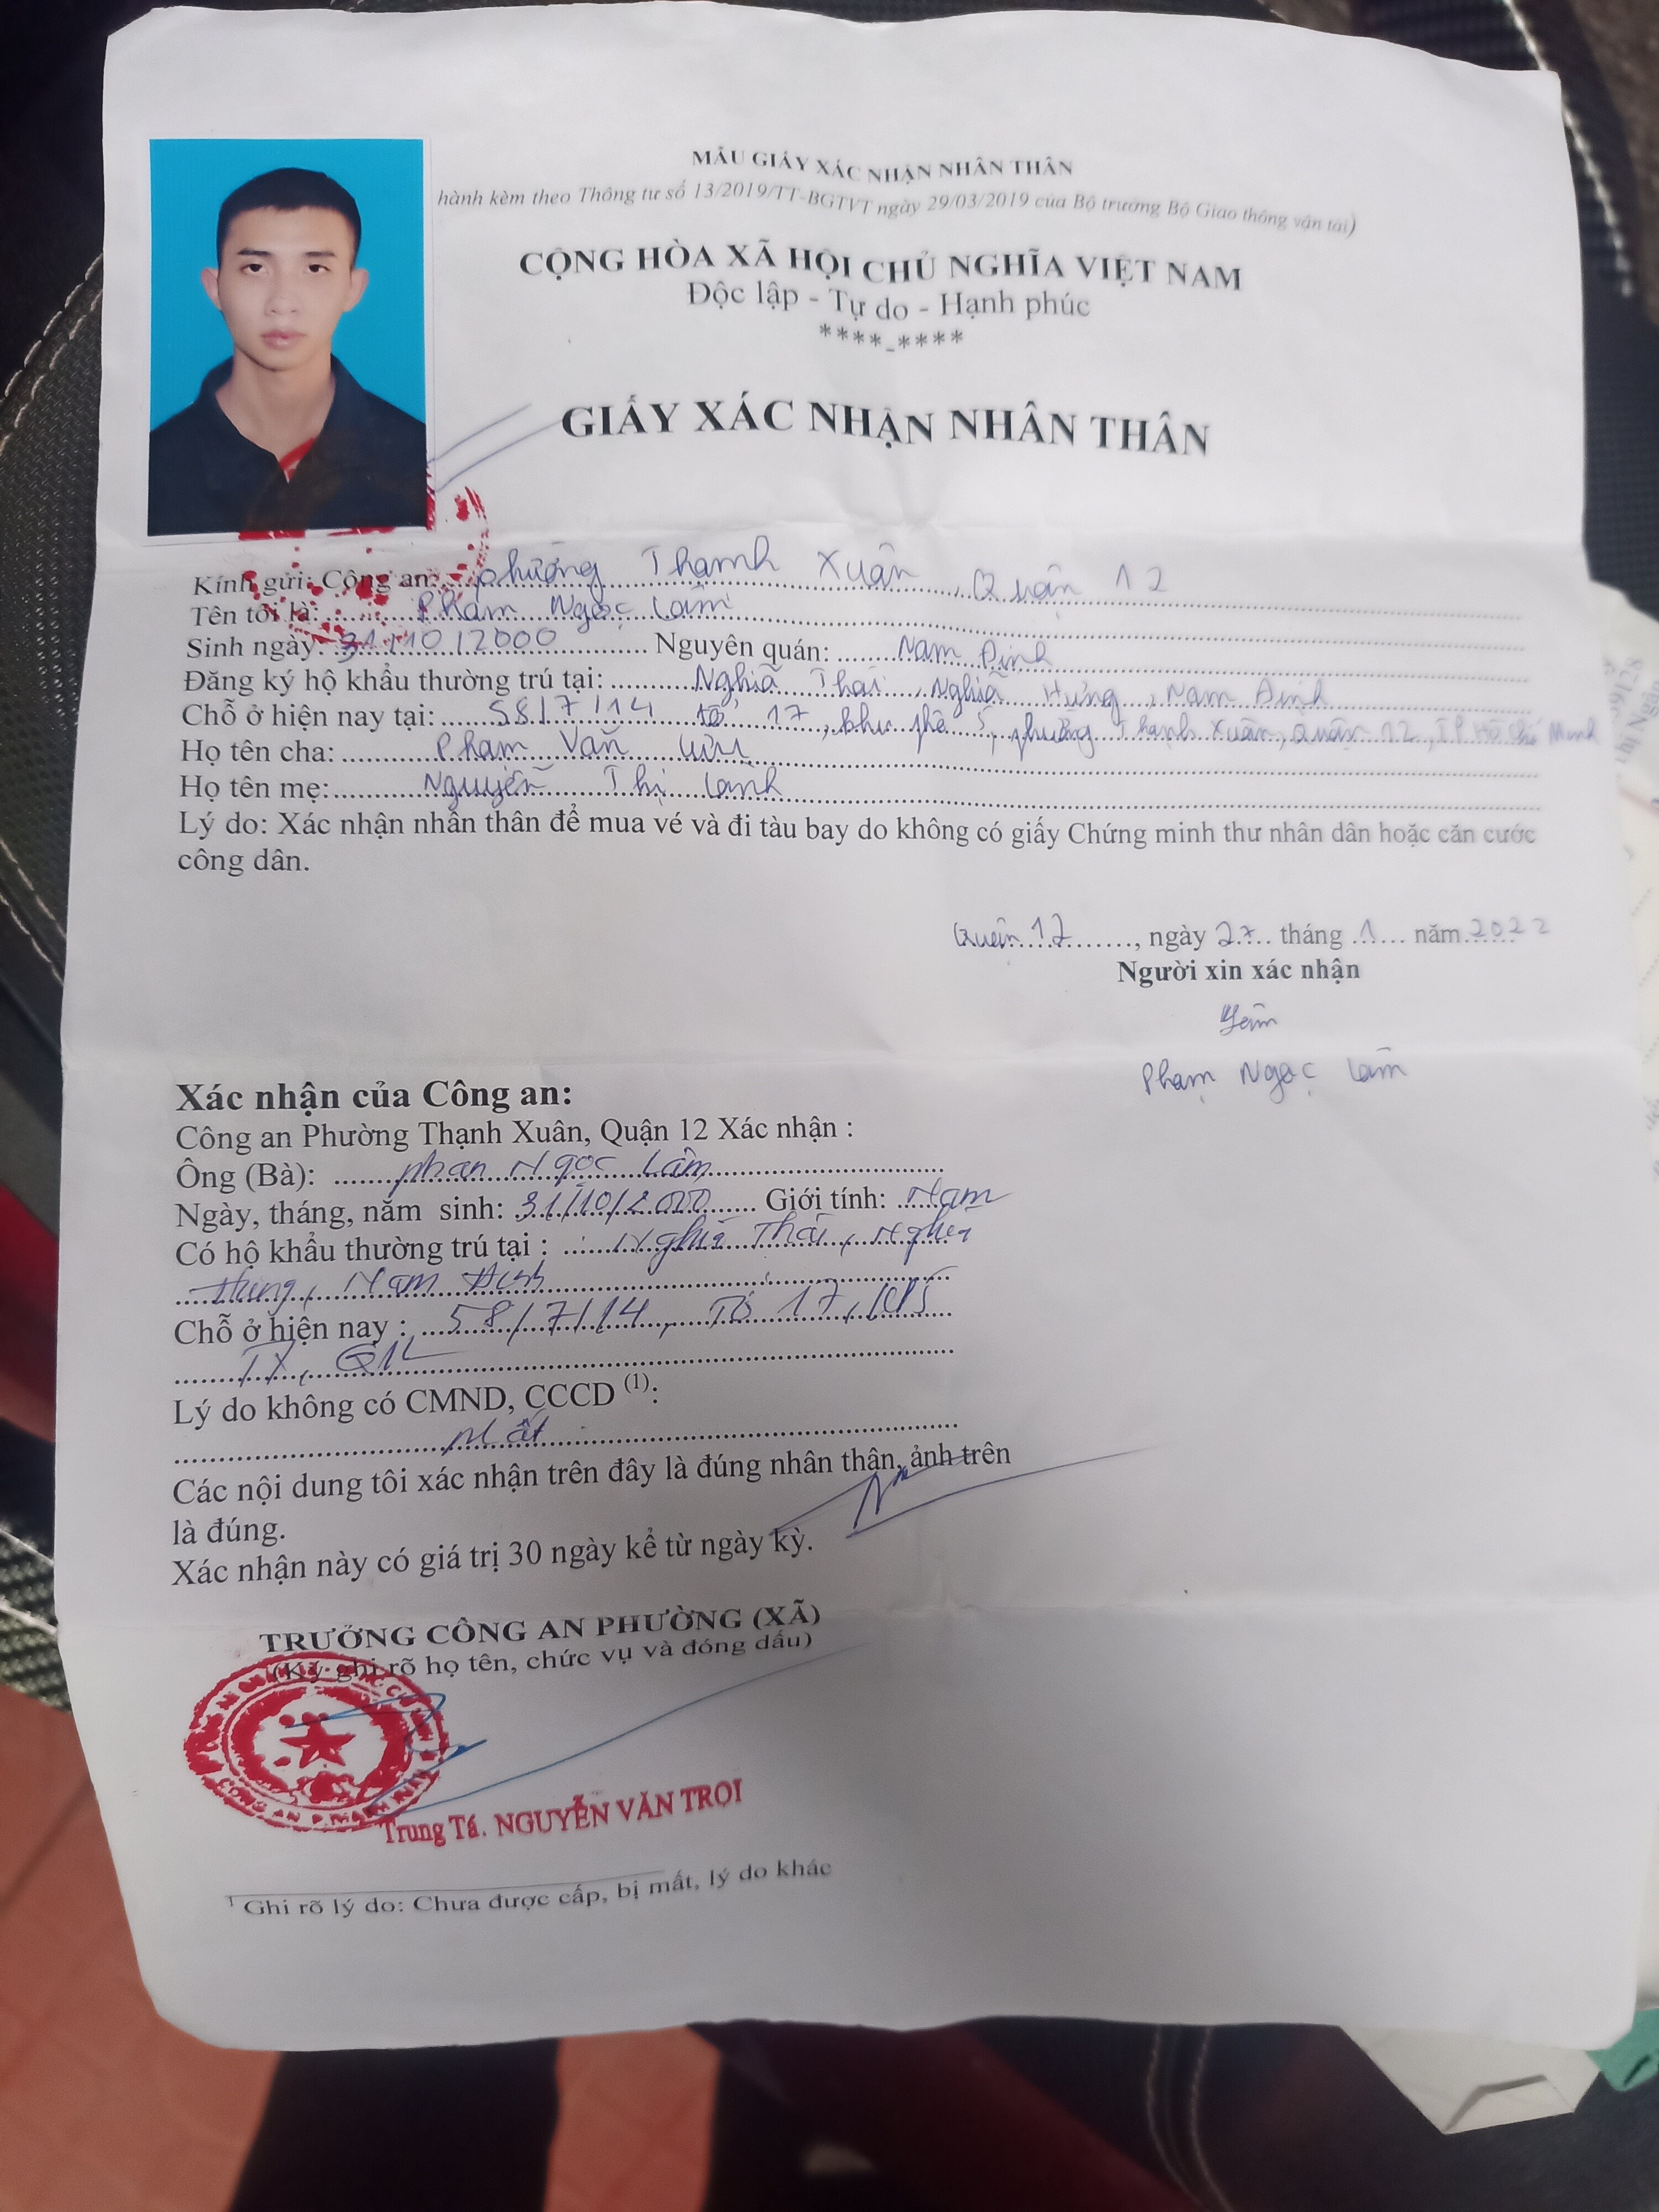 MẪU GIẤY XÁC NHẬN NHÂN THÂN
hành kèm theo Thông tư số 13/2019/TT-BGTVT ngày 29/03/2019 của Bộ trưởng Bộ Giao thông vận tải)
CỘNG HÒA XÃ HỘI CHỦ NGHĨA VIỆT NAM
Độc lập - Tự do - Hạnh phúc
****_****
GIẤY XÁC NHẬN NHÂN THÂN
Kính gửi: Công an: phường Thạnh Xuân, Quận 12
Tên tôi là: Phạm Ngọc Lâm
Sinh ngày: 31/10/2000 Nguyên quán: Nam Định
Đăng ký hộ khẩu thường trú tại: Nghĩa Thái, Nghĩa Hưng, Nam Định
Chỗ ở hiện nay tại: 58/7/14 tổ 17, khu phố 5, phường Thạnh Xuân, Quận 12, TP Hồ Chí Minh
Họ tên cha: Phạm Văn Lưu
Họ tên mẹ: Nguyễn Thị Lành
Lý do: Xác nhận nhân thân để mua vé và đi tàu bay do không có giấy Chứng minh thư nhân dân hoặc căn cước
công dân.
Quận 12, ngày 27 tháng 1 năm 2022
Người xin xác nhận
Lâm
Phạm Ngọc Lâm
Xác nhận của Công an:
Công an Phường Thạnh Xuân, Quận 12 Xác nhận :
Ông (Bà): Phạm Ngọc Lâm
Ngày, tháng, năm sinh: 31/10/2000 Giới tính: Nam
Có hộ khẩu thường trú tại : Nghĩa Thái, Nghĩa
Hưng, Nam Định
Chỗ ở hiện nay : 58/7/14, Tổ 17, KP5
TX, Q12
Lý do không có CMND, CCCD (1):
Mất
Các nội dung tôi xác nhận trên đây là đúng nhân thân, ảnh trên
là đúng.
Xác nhận này có giá trị 30 ngày kể từ ngày ký.
TRƯỞNG CÔNG AN PHƯỜNG (XÃ)
(Ký ghi rõ họ tên, chức vụ và đóng dấu)
CÔNG AN P. THẠNH XUÂN
Trung Tá. NGUYỄN VĂN TRỌI
1 Ghi rõ lý do: Chưa được cấp, bị mất, lý do khác